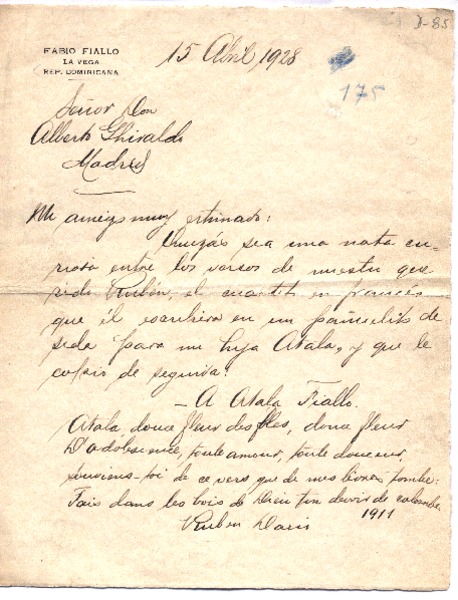 D-85
FABIO FIALLO
LA VEGA
REP. DOMINICANA
15 Abril 1928
175
Señor Don
Alberto Ghiraldo
Madrid
Mi amigo muy estimado:
Quizás sea una nota cu-
riosa entre los versos de nuestro que-
rido Rubén, el cuarteto en francés
que él escribiera en un pañuelito de
seda para mi hija Atala, y que le
copio de seguida:
— A Atala Fiallo.
Atala douce fleur des îles, douce fleur
D'adolescence, toute amour, toute douceur,
souviens-toi de ce vers que de mes lèvres tombe:
Fais dans les bois de Dieu ton devoir de colombe.
Rubén Darío 1911